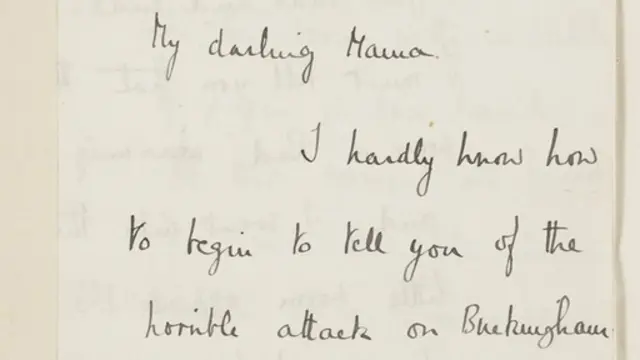 My darling Mama.
I hardly know how
to begin to tell you of the
horrible attack on Buckingham